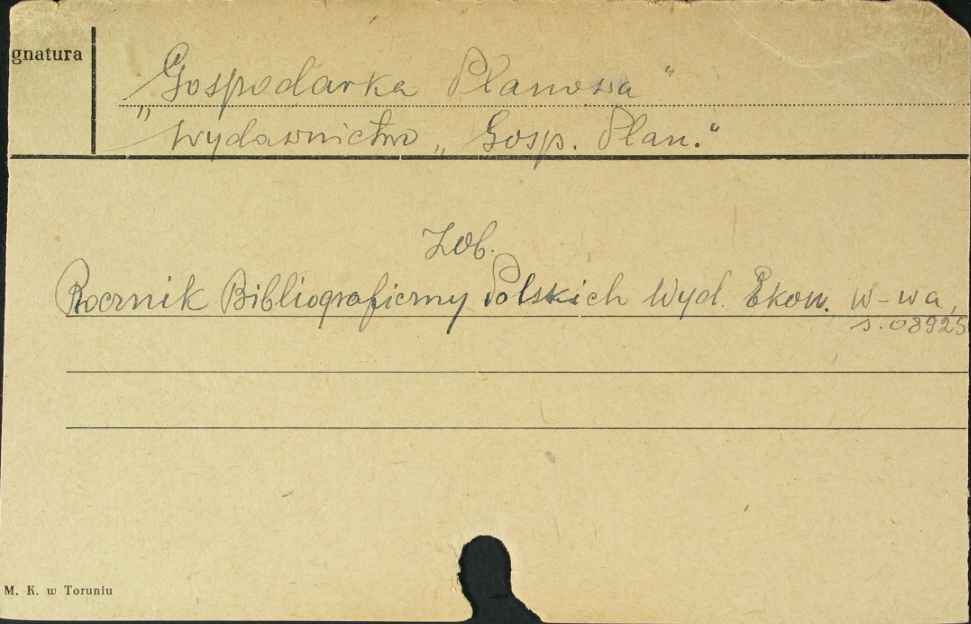 gnatura
„Gospodarka Planowa"
Wydawnictwo „Gosp. Plan."
Zob.
Rocznik Bibliograficzny Polskich Wyd. Ekon. W-wa,
s. 08925
M. K. w Toruniu